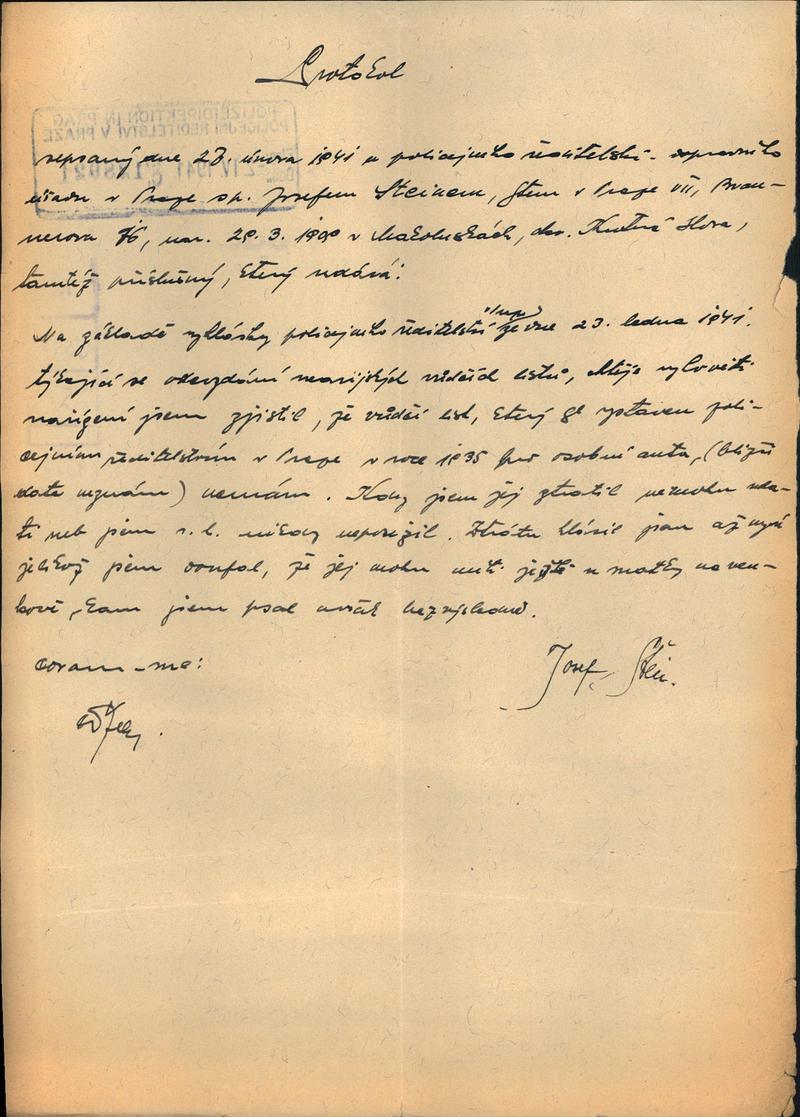 Protokol
sepsaný dne 27. února 1941 u policejního ředitelství - dopravního
úřadu v Praze s p. Josefem Steinem, bytem v Praze VII,
nerova 76, nar. 29. 3. 1890 v okr. Kutná Hora,
tamtéž příslušný, který udává:
Na základě vyhlášky policejního ředitelství ze dne 23. ledna 1941.
týkající se odevzdání neárijských vůdčích listů, chtěje vyhověti
nařízení jsem zjistil, že vůdčí list, který byl vystaven poli-
cejním ředitelstvím v Praze v roce 1935 pro osobní auta, (bližší
data neznám) nemám. Kdy jsem jej ztratil nemohu uda-
ti neb jsem v. l. nikdy nepoužil. Ztrátu hlásil jsem až nyní
jelikož jsem doufal, že jej mohu míti ještě u matky na ven-
kově, kam jsem psal avšak bezvýsledně.
coram - me:
Josef Stein.
POLIZEIDIREKTION IN PRAG
POLICEJNÍ ŘEDITELSTVÍ V PRAZE